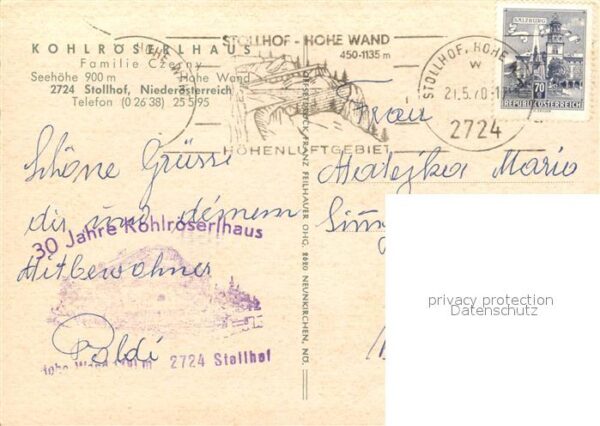 KOHLRÖSERLHAUS
Familie Czerny
Seehöhe 900 m Hohe Wand
2724 Stollhof, Niederösterreich
Telefon (0 26 38) 25 5/95
STOLLHOF - HOHE WAND
450-1135 m
HÖHENLUFTGEBIET
STOLLHOF, HOHE W
21.5.70
2724
SALZBURG
70
REPUBLIK ÖSTERREICH
Schöne Grüsse
dir und deinem
Mitbewohner
Poldi
30 Jahre Kohlröserlhaus
Hohe Wand
2724 Stollhof
FRANZ FEILHAUER OHG, 2620 NEUNKIRCHEN, NÖ.
Frau
Matejka Maria
privacy protection
Datenschutz